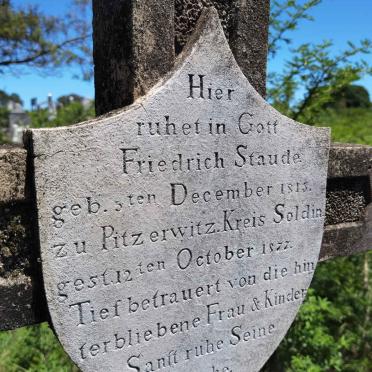 Hier
ruhet in Gott
Friedrich Staude
geb. 3ten December 1815.
zu Pitzerwitz. Kreis Soldin
gest. 12ten October 1877.
Tief betrauert von die hin
terbliebene Frau & Kinder
Sanft ruhe Seine